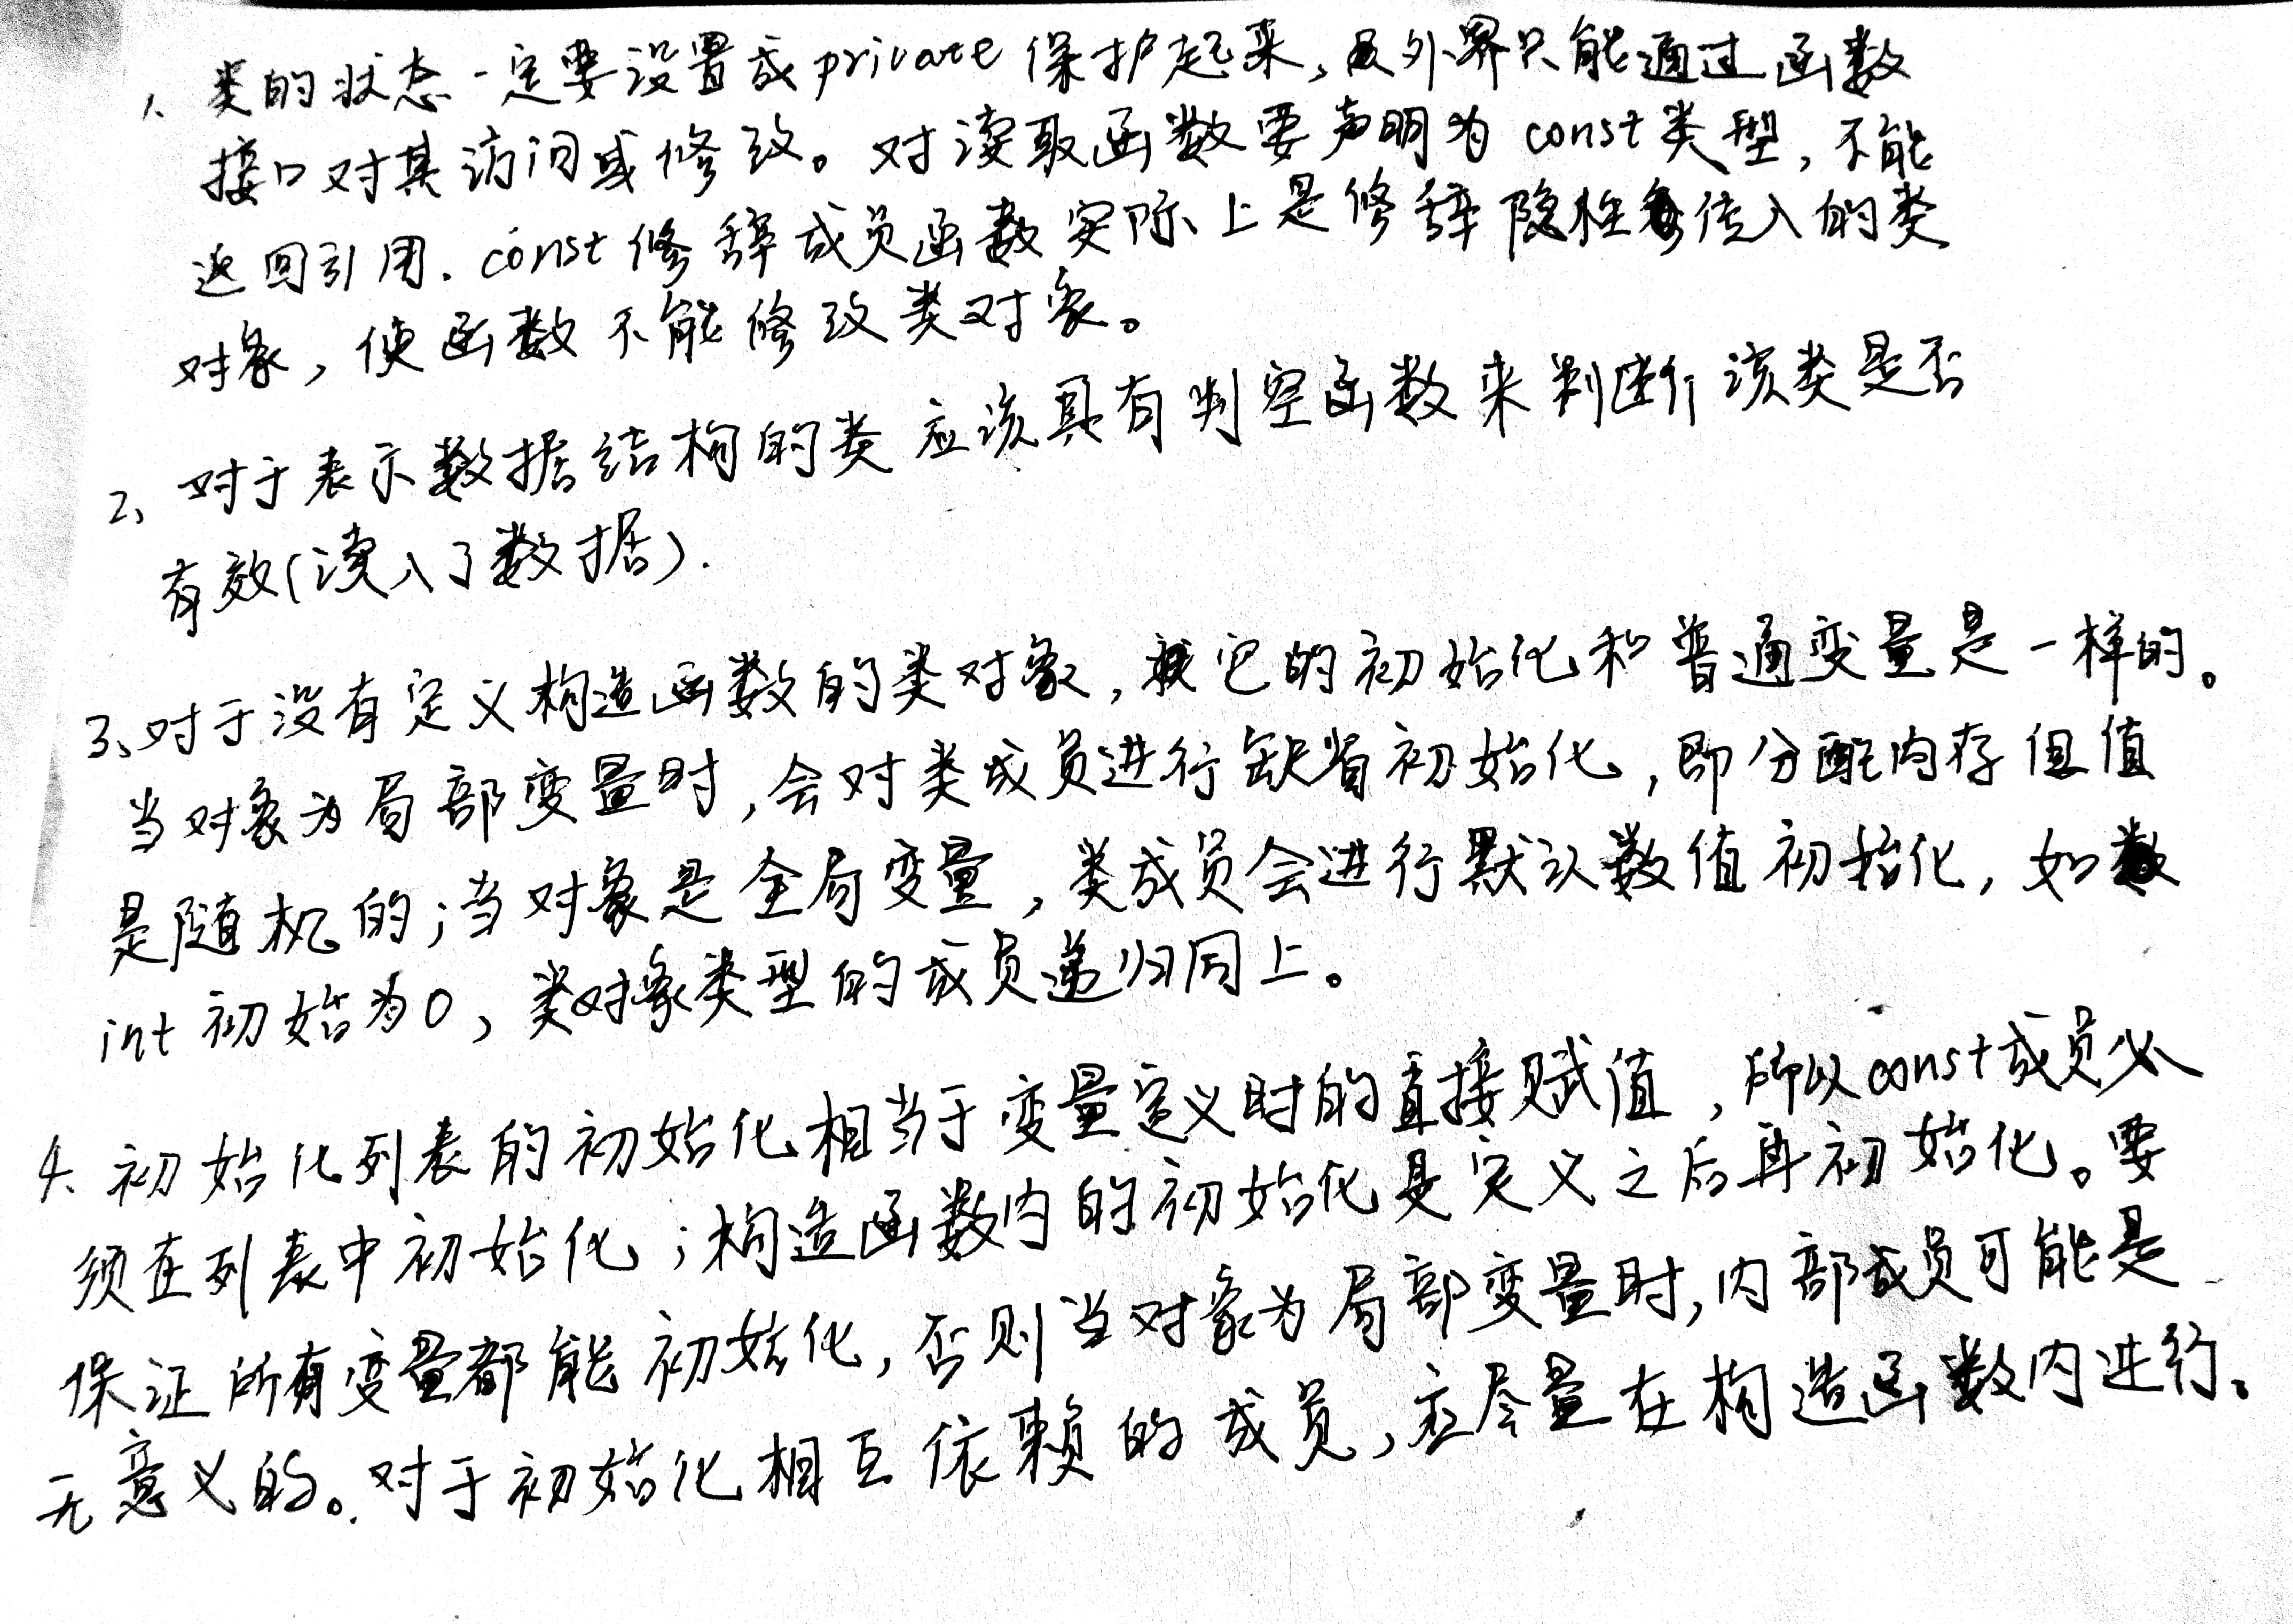 1、类的状态一定要设置成private保护起来，外界只能通过函数
接口对其访问或修改。对读取函数要声明为const类型，不能
返回引用．const修辞成员函数实际上是修辞隐性传入的类
对象，使函数不能修改类对象。
2、对于表示数据结构的类应该具有判空函数来判断该类是否
有效(读入了数据).
3、对于没有定义构造函数的类对象，它的初始化和普通变量是一样的。
当对象为局部变量时，会对类成员进行缺省初始化，即分配内存但值
是随机的；当对象是全局变量，类成员会进行默认数值初始化，如
int初始为0，类对象类型的成员递归同上。
4、初始化列表的初始化相当于变量定义时的直接赋值，所以const成员必
须在列表中初始化；构造函数内的初始化是定义之后再初始化。要
保证所有变量都能初始化，否则当对象为局部变量时，内部成员可能是
无意义的。对于初始化相互依赖的成员，应尽量在构造函数内进行。